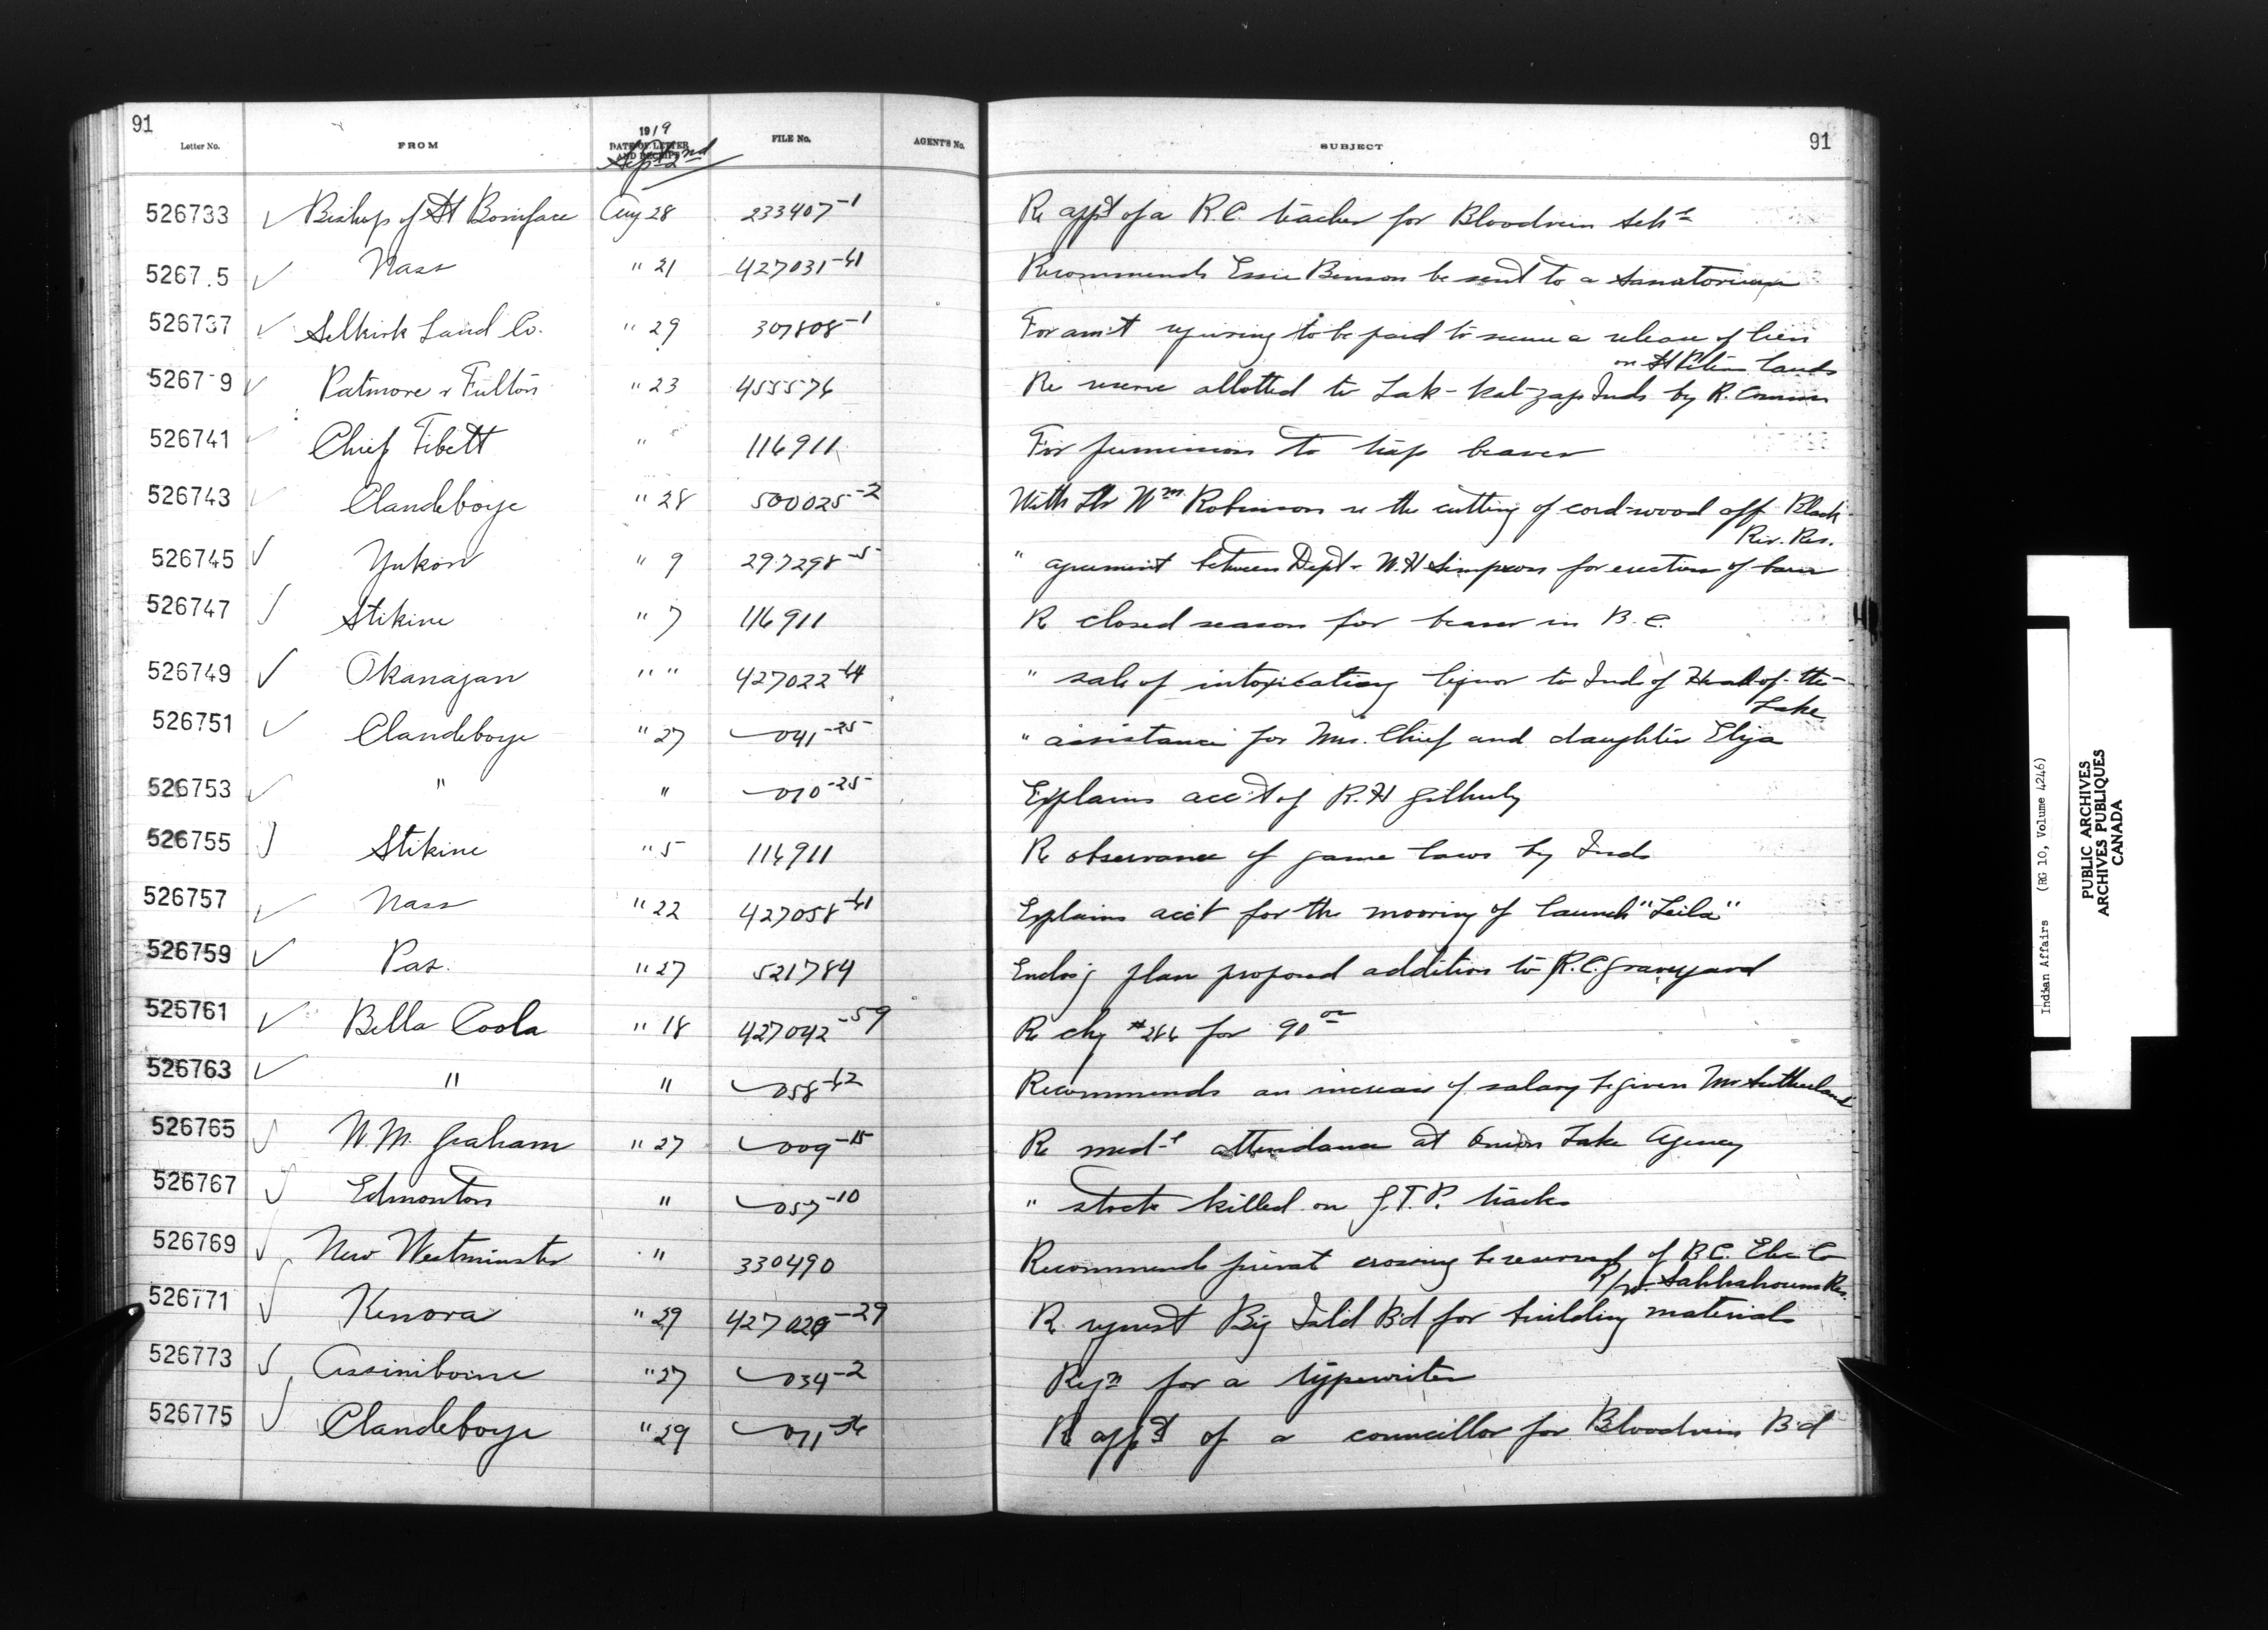 91
Letter No. FROM 1919 DATE OF LETTER AND RECEIPT FILE No. AGENT'S No. SUBJECT 91
Sept 2nd
526733 Bishop of St Boniface Aug 28 233407-1 Re app't of a R.C. teacher for Bloodvein Sch'l
5267 5 Nass " 21 427031-61 Recommends Essie Benson be sent to a sanatorium
526737 Selkirk Land Co. " 29 307808-1 For am't requiring to be paid to secure a release of lien
on St Peters lands
5267 9 Patmore & Fulton " 23 455576 Re reserve allotted to Lak-kal-zap Inds by R. Commn
526741 Chief Tibett " 116911 For permission to trap beaver
526743 Clandeboye " 28 500025-2 With Ltr Wm Robinson re the cutting of cord-wood off Black
Riv. Res.
526745 Yukon " 9 297298-5 " agreement between Dept & W.H Simpson for erection of barn
526747 Stikine " 7 116911 R closed season for beaver in B.C.
526749 Okanagan " " 427022-64 " sale of intoxicating liquor to Ind of Head-of-the-
Lake
526751 Clandeboye " 27 041-25 " assistance for Mrs. Chief and daughter Eliza
526753 " " 010-25 Explains acc't of R.H Gilhuly
526755 Stikine " 5 116911 R observance of game laws by Inds
526757 Nass " 22 427058-61 Explains acc't for the mooring of launch "Leila"
526759 Pas. " 27 521784 Enclos'g plan proposed addition to R.C. graveyard
526761 Bella Coola " 18 427042-59 R chq #286 for 90 00
526763 " " 058-62 Recommends an increase of salary be given Mr Sutherland
526765 W.M. Graham " 27 009-15 Re med-l attendance at Onion Lake Agency
526767 Edmonton " 057-10 " stock killed on G.T.P. tracks
526769 New Westminster " 330490 Recommends privat crossing be reserved of B.C. Elec Co
R/w. Sahhahcum Res.
526771 Kenora " 29 427029-29 R request Big Isl'd B'd for building materials
526773 Assiniboine " 27 034-2 Reqn for a typewriter
526775 Clandeboye " 29 011-26 R app't of a councillor for Bloodvein B'd
Indian Affairs (RG 10, Volume 4246)
PUBLIC ARCHIVES
ARCHIVES PUBLIQUES
CANADA